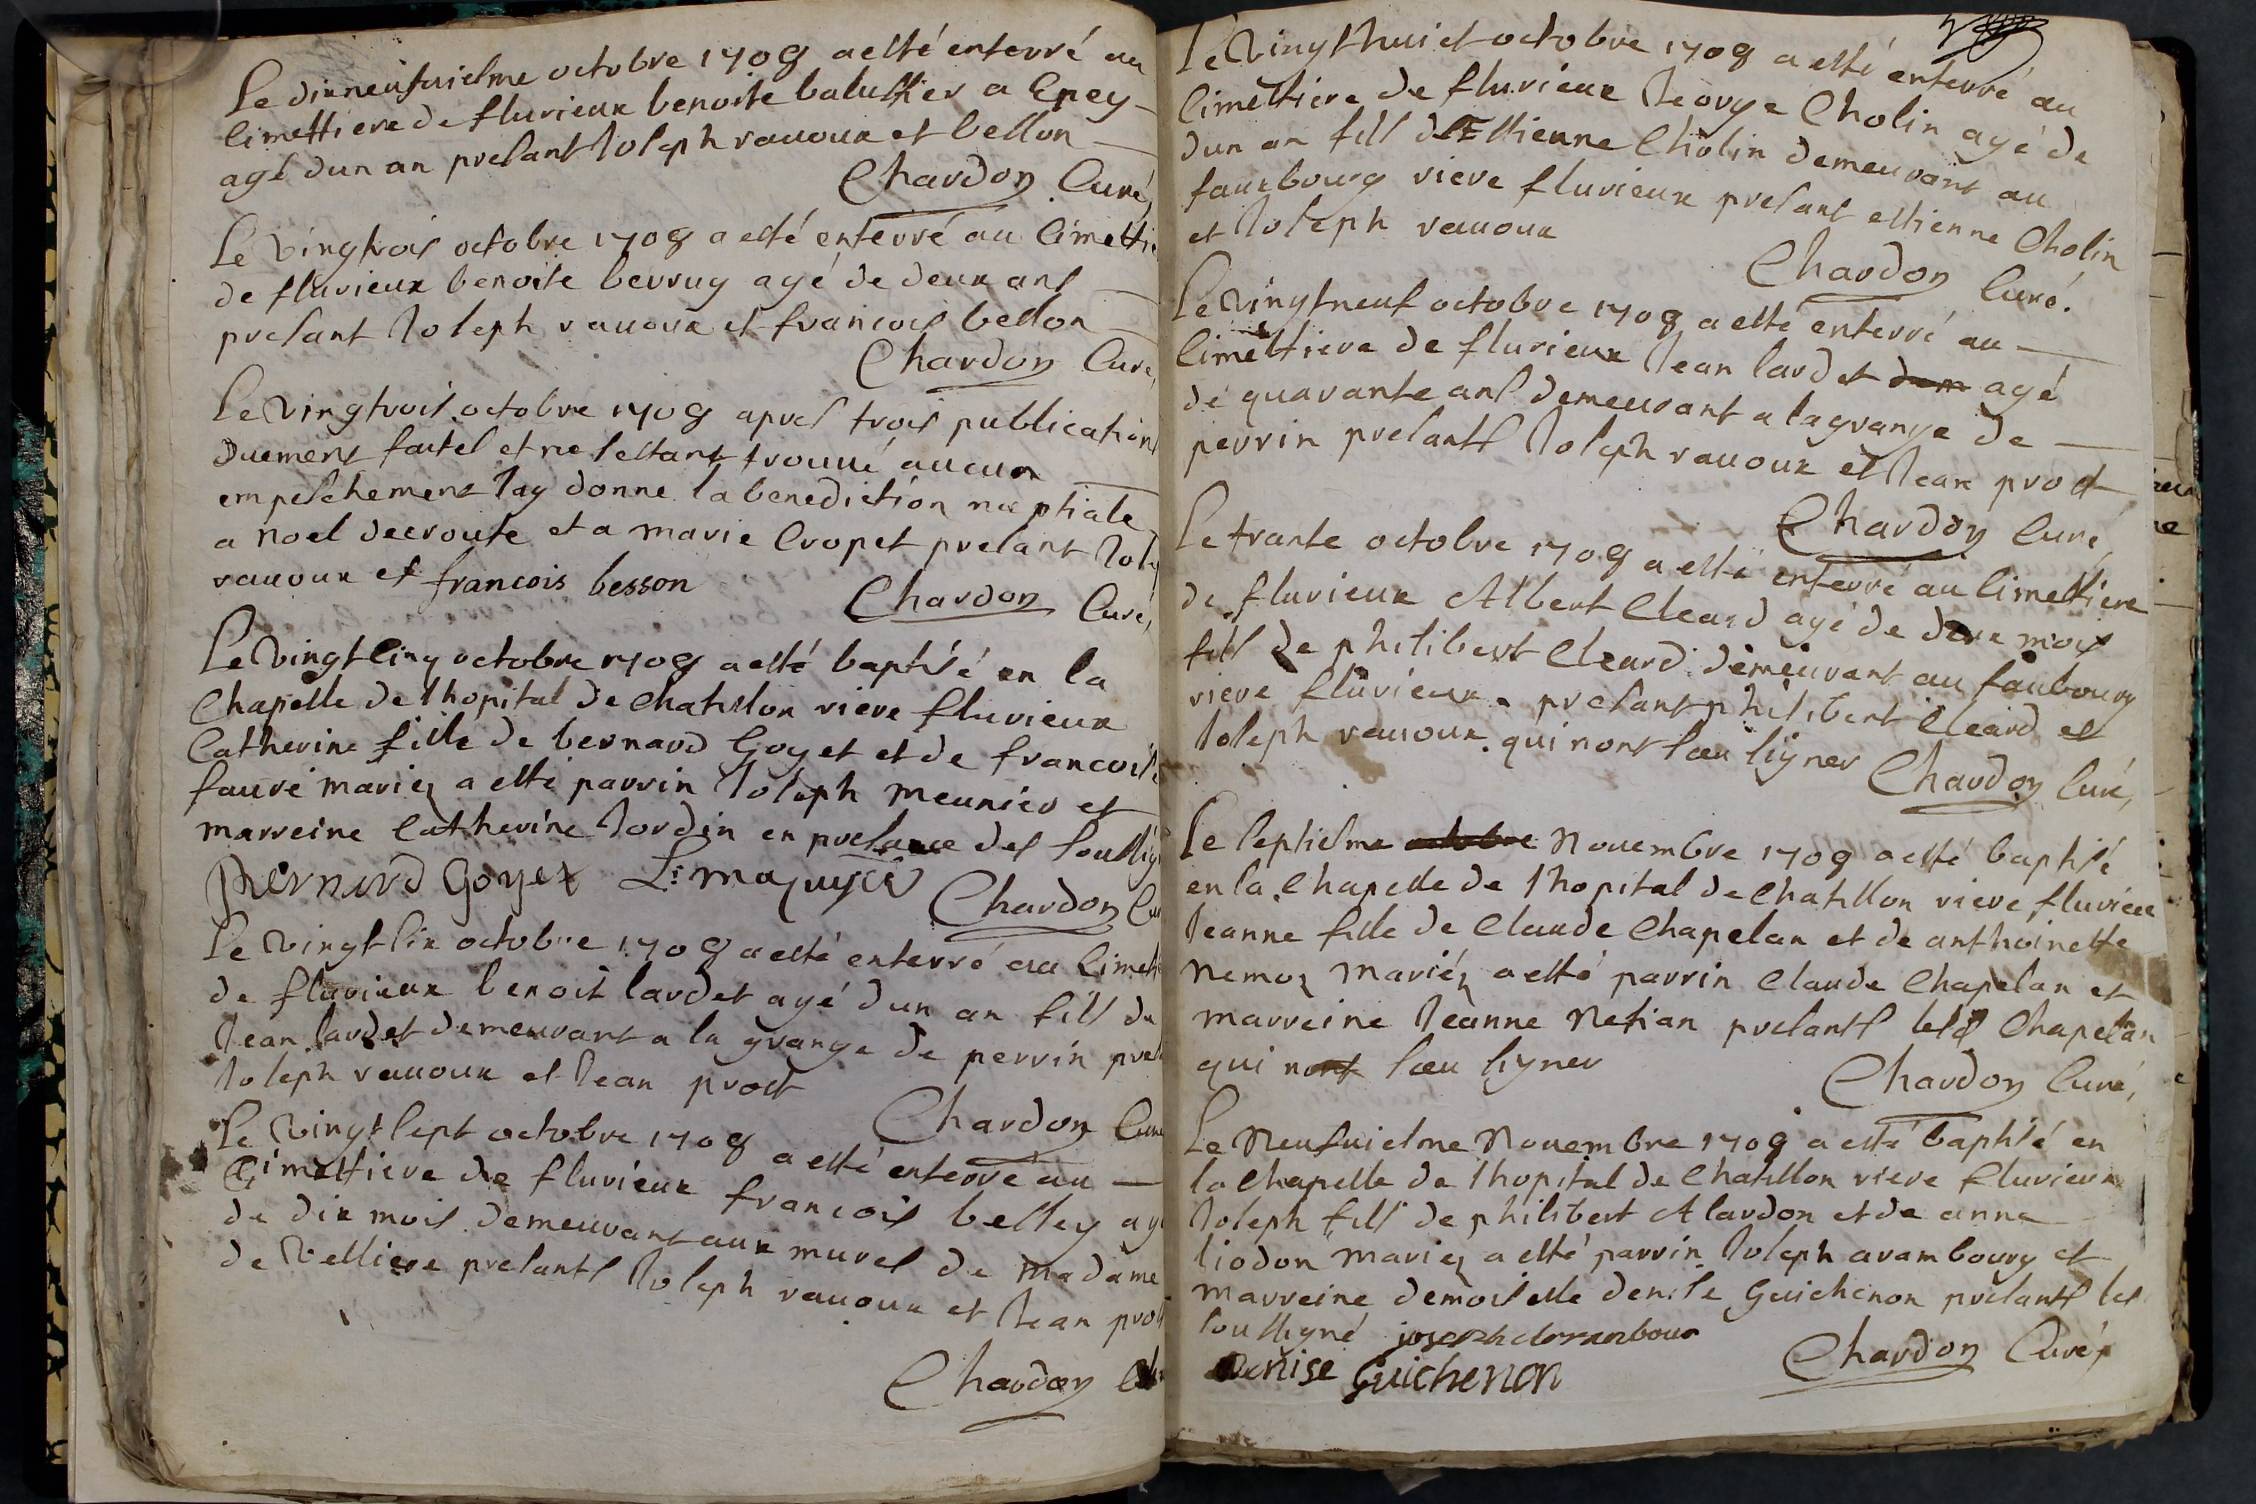 Le dixneufuiesme octobre 1709 a esté enterré au
cimettiere de flurieux benoite balustier a Epey
agé dun an presant Joseph rauoux et bellon
Chardon Curé
Le vingtrois octobre 1709 a esté enterré au cimettie
de flurieux benoite berruy agé de deux ans
presant Joseph rauoux et francois bellon
Chardon Curé
Le vingtrois octobre 1709 apres trois publications
duement faites et ne sestant trouué aucun
empeschement Jay donne la benediction nuptiale
a noel decroute et a marie Cropet presant Jose
rauoux et francois besson
Chardon Curé
Le vingtcinq octobre 1709 a esté baptisé en la
Chapelle de lhopital de Chatillon riere flurieux
Catherine fille de bernard Goyet et de francoise
faure mariez a esté parrin Joseph meunier et
marreine Catherine Jordin en presance des soussig
Bernard Goyet
Chardon Cu
Le vingtsix octobre 1709 a esté enterré au Cimet
de flurieux benoit lardet agé dun an fils de
Jean lardet demeurant a la grange de perrin pres
Joseph rauoux et Jean prost
Chardon Cure
Le vingtsept octobre 1709 a esté enterré au
Cimettiere de flurieux francois bestey ag
de dix mois demeurant aux mures de madame
de Vessiere presants Joseph rauoux et Jean prost
Chardon
Le vingthuict octobre 1709 a esté enterré au
cimettiere de flurieux George Cholin agé de
dun an fils dEstienne Cholin demeurant au
fauxbourg riere flurieux presant estienne Cholin
et Joseph rauoux
Chardon Curé.
Le vingtneuf octobre 1709 a esté enterré au
cimettiere de flurieux Jean lardet dem agé
de quarante ans demeurant a la grange de
perrin presants Joseph rauoux et Jean prost
Chardon Curé
Le trante octobre 1709 a esté enterré au cimettiere
de flurieux Albert Cleard agé de deux mois
fils de philibert Cleard demeurant au faubourg
riere flurieux. presant philibert Cleard et
Joseph rauoux. qui nont sceu signer
Chardon Curé,
Le septiesme octobre Nouembre 1709 a esté baptisé
en la Chapelle de lhopital de Chatillon riere flurieux
Jeanne fille de Claude Chapelan et de anthoinette
nemoz mariéz a esté parrin Claude Chapelan et
marreine Jeanne Netian presants led Chapelan
qui nont sceu signer
Chardon Curé,
Le Neufuiesme Nouembre 1709 a esté baptisé en
la Chapelle de lhopital de Chatillon riere flurieux
Joseph fils de philibert Alardon et de anne
liodon mariez a esté parrin Joseph arambourg et
marreine demoiselle denise Guichenon presants les
soussigné joseph darambour
Denise Guichenon
Chardon Curé